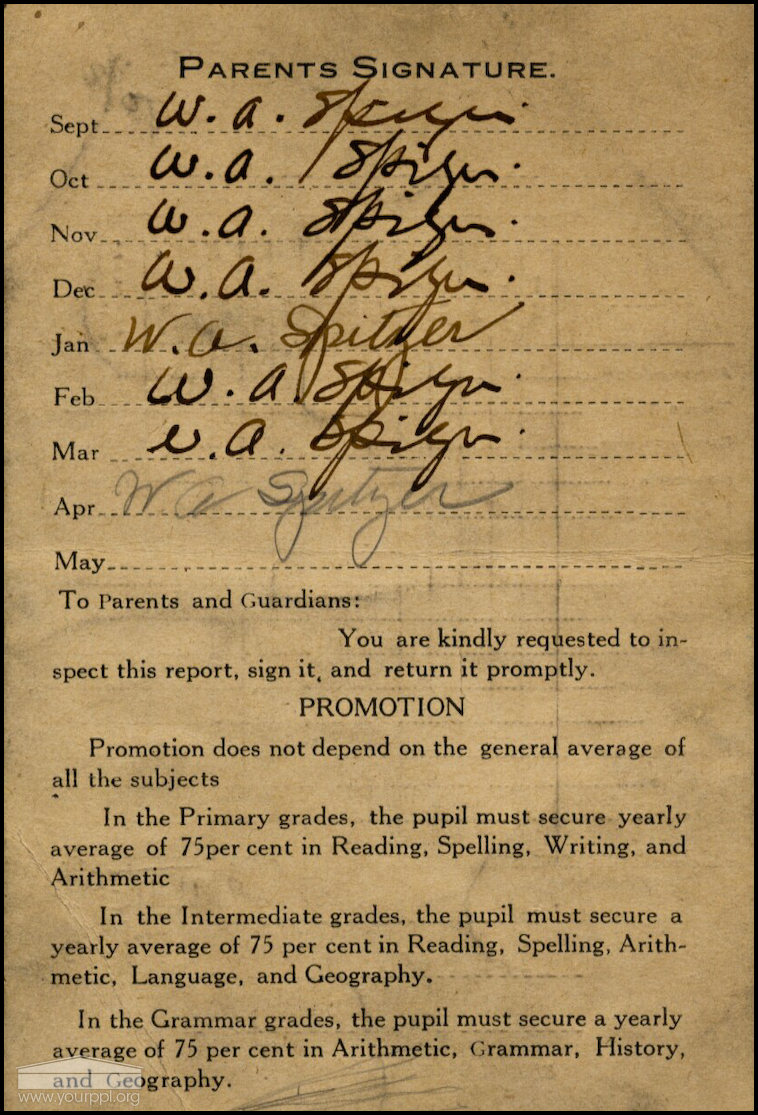 PARENTS SIGNATURE.
Sept W. A. Spitzer.
Oct W. A. Spitzer.
Nov W. A. Spitzer.
Dec W. A. Spitzer.
Jan W. A. Spitzer
Feb W. A. Spitzer.
Mar W. A. Spitzer.
Apr W A Spitzer
May
To Parents and Guardians:
You are kindly requested to in-
spect this report, sign it, and return it promptly.
PROMOTION
Promotion does not depend on the general average of
all the subjects
In the Primary grades, the pupil must secure yearly
average of 75per cent in Reading, Spelling, Writing, and
Arithmetic
In the Intermediate grades, the pupil must secure a
yearly average of 75 per cent in Reading, Spelling, Arith-
metic, Language, and Geography.
In the Grammar grades, the pupil must secure a yearly
average of 75 per cent in Arithmetic, Grammar, History,
and Geography.
www.yourppl.org